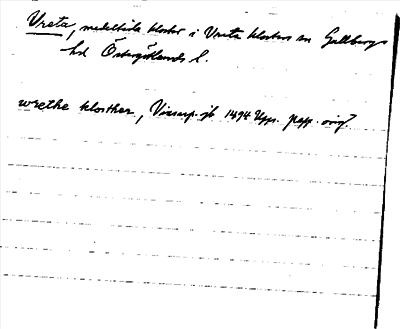 Vreta, medeltida kloster i Vreta klosters sn Gullbergs
hd Östergötlands l.
wrethe kloster, Vinarp. jb 1494 Upps. papp. orig.